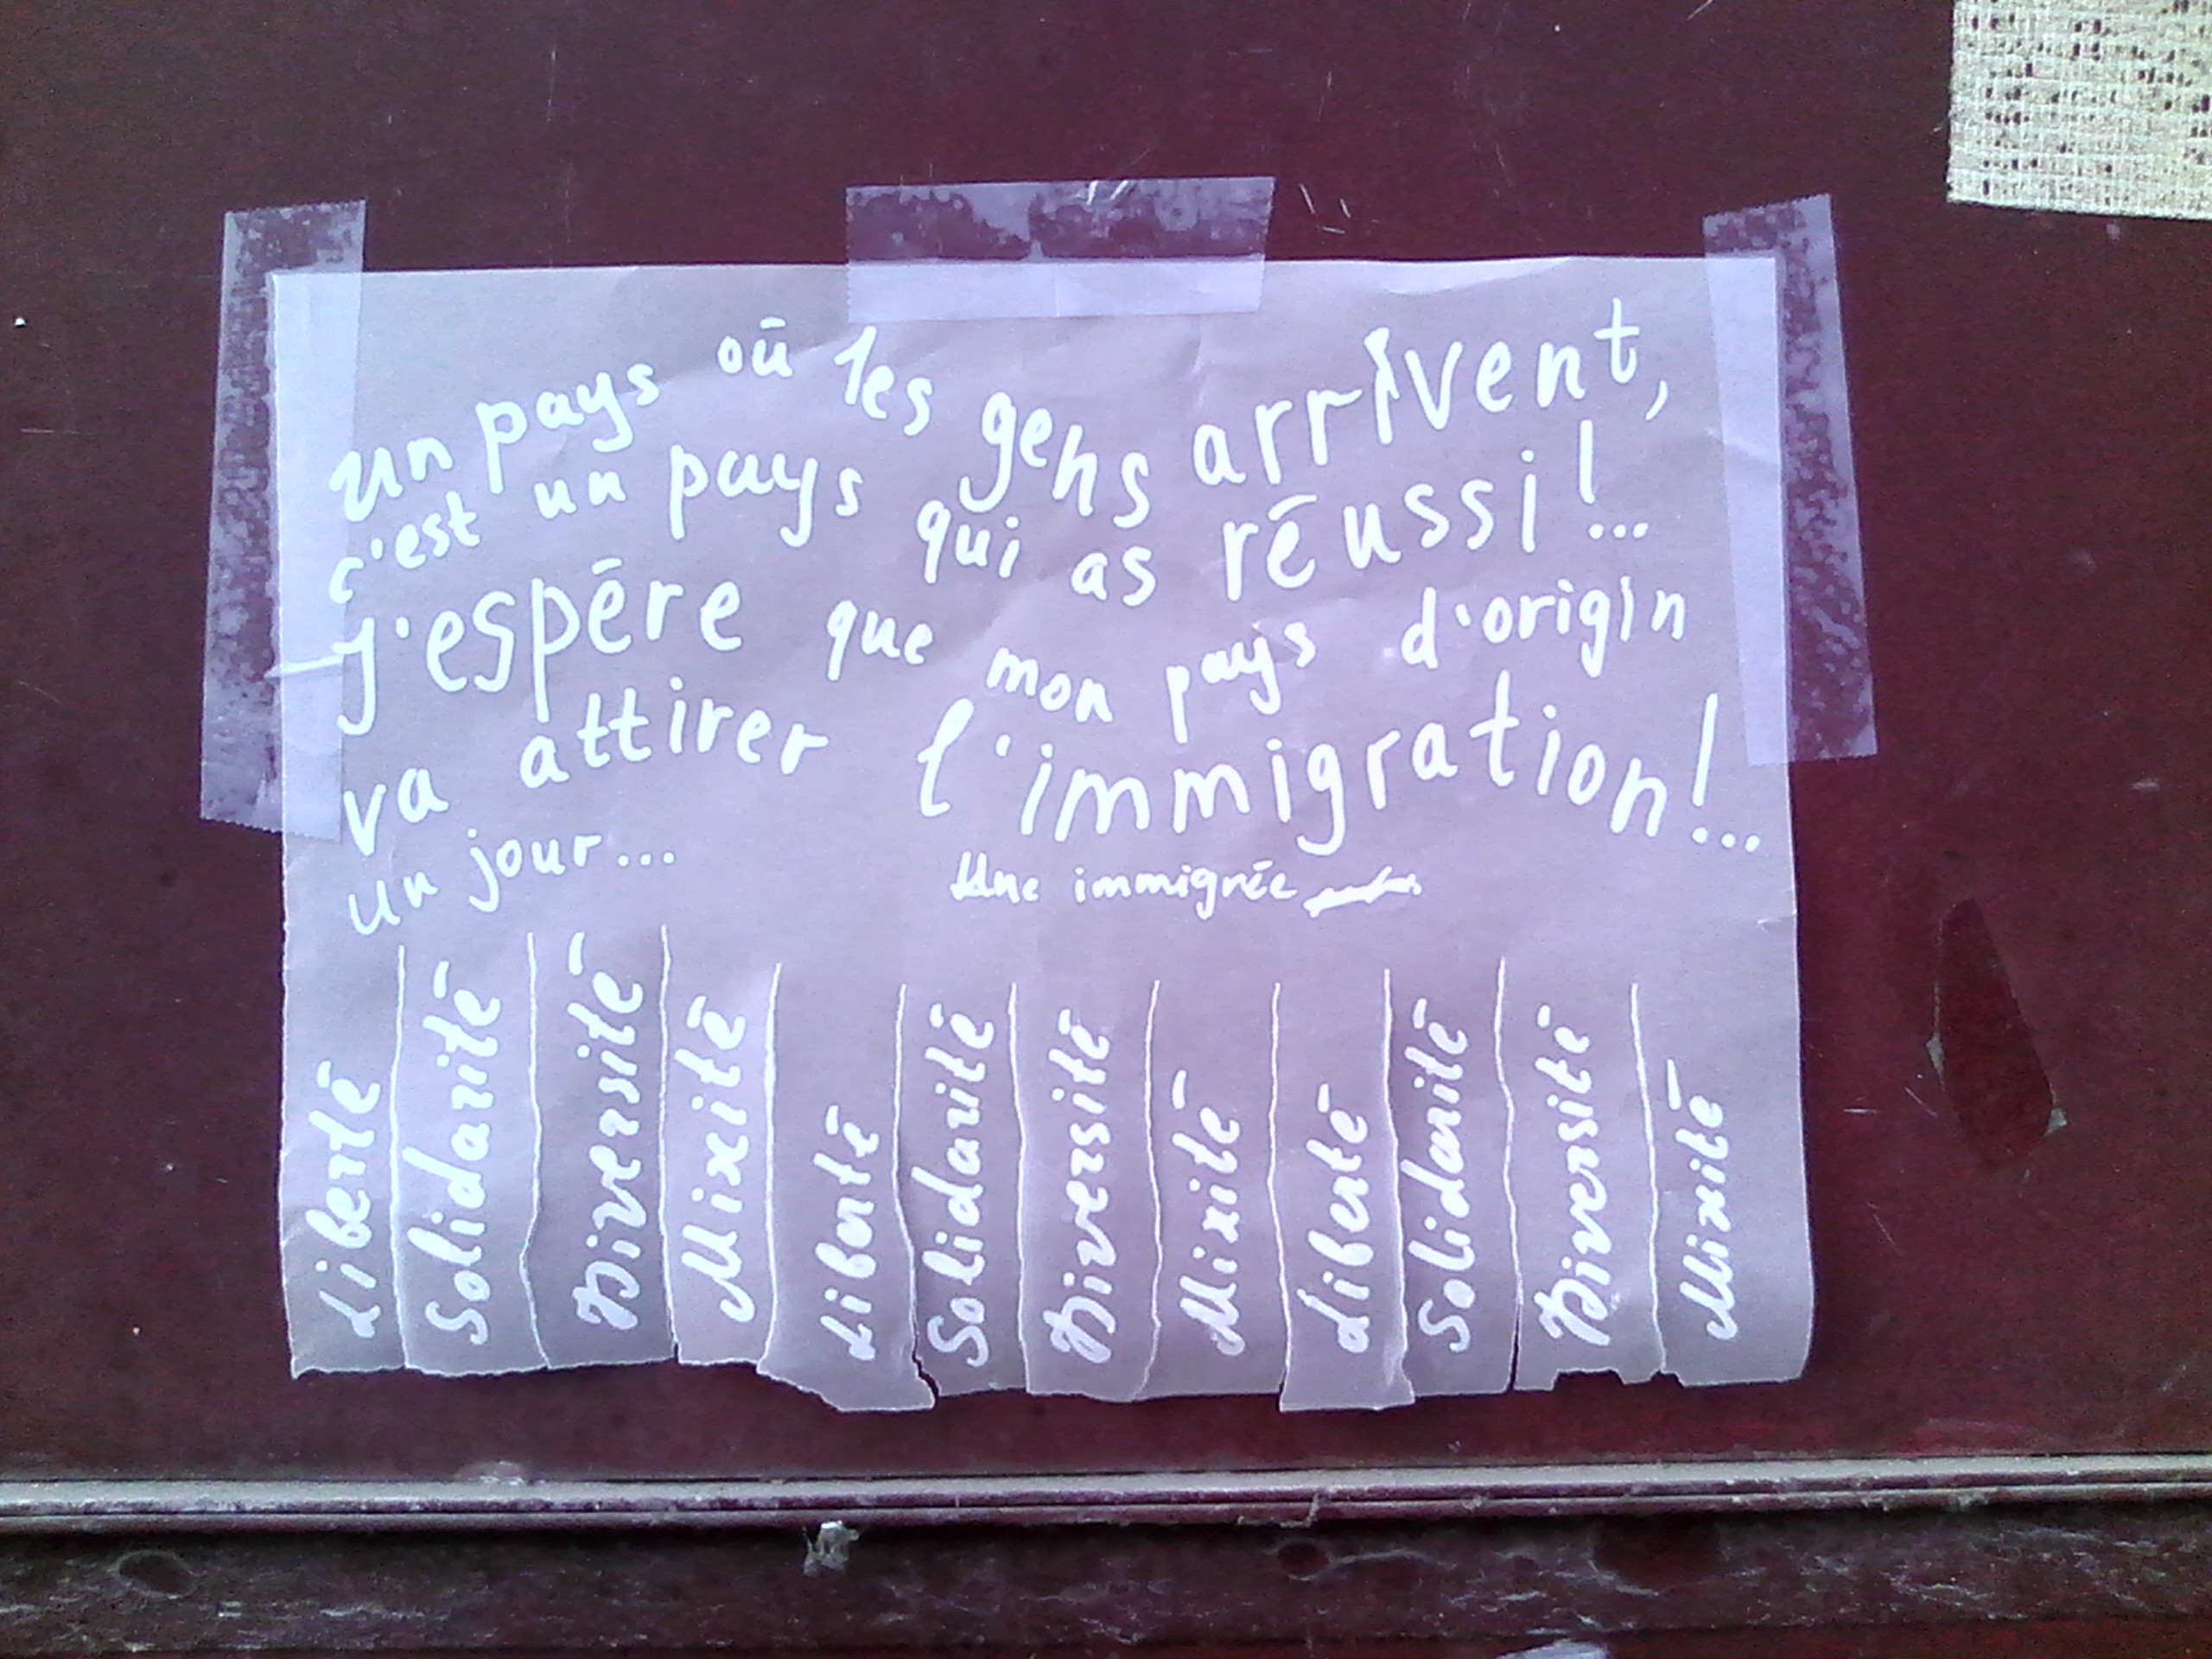 un pays où les gens arrivent,
c'est un pays qui as réussi!...
J'espére que mon pays d'origin
va attirer l'immigration!...
un jour...
Une immigrée
Liberté
Solidarité
Diversité
Mixité
Liberté
Solidarité
Diversité
Mixité
Liberté
Solidarité
Diversité
Mixité